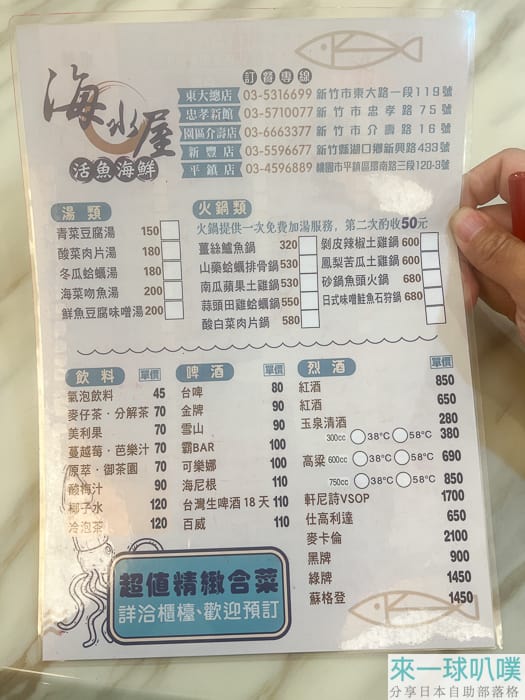 海水屋
活魚海鮮
訂餐專線
東大總店 03-5316699 新竹市東大路一段119號
忠孝新館 03-5710077 新竹市忠孝路75號
園區介壽店 03-6663377 新竹市介壽路16號
新豐店 03-5596677 新竹縣湖口鄉新興路433號
平鎮店 03-4596889 桃園市平鎮區環南路三段120-3號
湯類
青菜豆腐湯 150
酸菜肉片湯 180
冬瓜蛤蠣湯 180
海菜吻魚湯 200
鮮魚豆腐味噌湯 200
火鍋類
火鍋提供一次免費加湯服務，第二次酌收50元
薑絲鱸魚鍋 320
山藥蛤蠣排骨鍋 530
南瓜蘋果土雞鍋 530
蒜頭田雞蛤蠣鍋 550
酸白菜肉片鍋 580
剝皮辣椒土雞鍋 600
鳳梨苦瓜土雞鍋 600
砂鍋魚頭火鍋 680
日式味噌鮭魚石狩鍋 680
飲料 單價
氣泡飲料 45
麥仔茶·分解茶 70
美利果 70
蔓越莓·芭樂汁 70
原萃·御茶園 70
酸梅汁 90
椰子水 120
冷泡茶 120
啤酒 單價
台啤 80
金牌 90
雪山 90
霸BAR 100
可樂娜 100
海尼根 110
台灣生啤酒18天 110
百威 110
烈酒 單價
紅酒 850
紅酒 650
玉泉清酒 280
高粱
300cc 38°C 58°C 380
600cc 38°C 58°C 690
750cc 38°C 58°C 850
軒尼詩VSOP 1700
仕高利達 650
麥卡倫 2100
黑牌 900
綠牌 1450
蘇格登 1450
超值精緻合菜
詳洽櫃檯、歡迎預訂
來一球叭噗
分享日本自助部落格